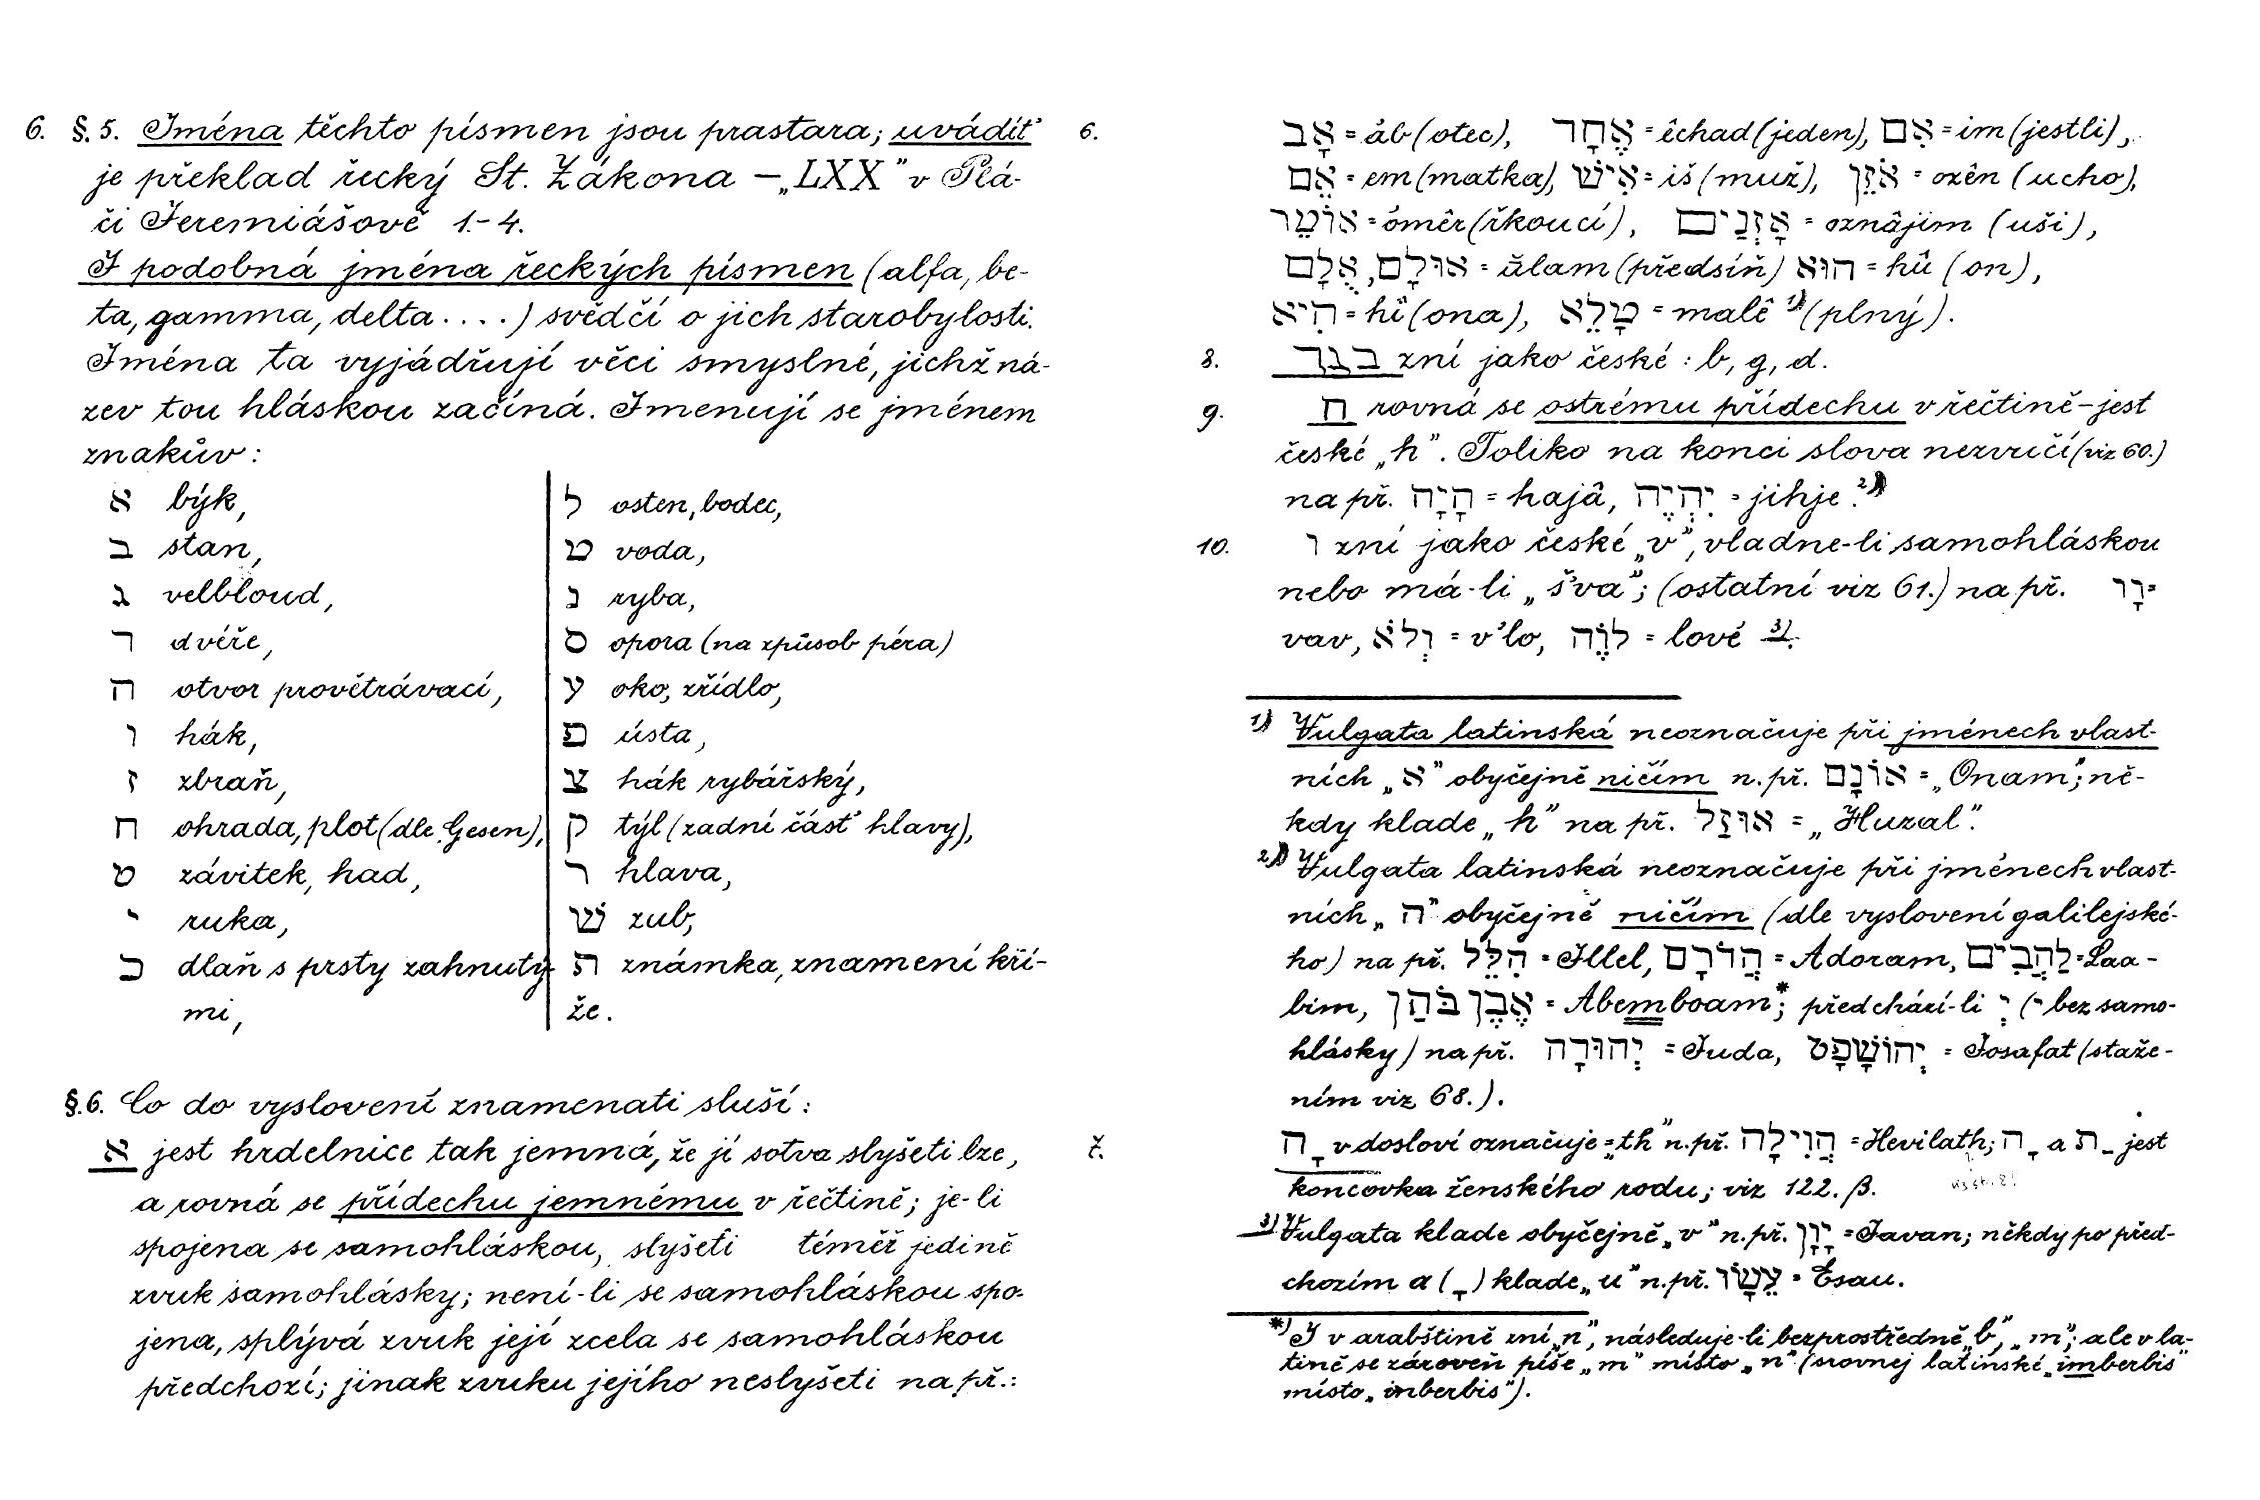 6. §. 5. Jména těchto písmen jsou prastara; uvádíť 6.
je překlad řecký St. Zákona – „LXX" v Plá-
či Jeremiášově 1.-4.
I podobná jména řeckých písmen (alfa, be-
ta, gamma, delta....) svědčí o jich starobylosti.
Jména ta vyjádřují věci smyslné, jichž ná-
zev tou hláskou začíná. Jmenují se jménem
znakův:
א býk,
ב stan,
ג velbloud,
ד dvéře,
ה otvor provětrávací,
ו hák,
ז zbraň,
ח ohrada, plot (dle Gesen),
ט závitek, had,
י ruka,
כ dlaň s prsty zahnutý-
mi,
ל osten, bodec,
מ voda,
נ ryba,
ס opora (na způsob péra)
ע oko, zřídlo,
פ ústa,
צ hák rybářský,
ק týl (zadní část' hlavy),
ר hlava,
שׁ zub,
ת známka, znamení kří-
že.
§. 6. Co do vyslovení znamenati sluší:
א jest hrdelnice tak jemná, že jí sotva slyšeti lze, 7.
a rovná se přídechu jemnému v řečtině; je-li
spojena se samohláskou, slyšeti téměř jedině
zvuk samohlásky; není-li se samohláskou spo-
jena, splývá zvuk její zcela se samohláskou
předchozí; jinak zvuku jejího neslyšeti na př.:
אָב = áb (otec), אֶחָד = êchad (jeden), אִם = im (jestli),
אֵם = em (matka), אִישׁ = iš (muž), אֹזֵן = ozên (ucho),
אוֹמֵר = ómêr (řkoucí), אָזְנַיִם = oznâjim (uši),
אוּלָם, אֻלָם = ŭlam (předsíň) הוּא = hû (on),
הִיא = hî (ona), מָלֵא = malê 1) (plný).
8. בגד zní jako české : b, g, d.
9. ה rovná se ostrému přídechu v řečtině – jest
české „h". Toliko na konci slova nezvučí (viz 60.)
na př. הָיָה = hajâ, יִהְיֶה = jihje. 2)
10. ו zní jako české „v", vládne-li samohláskou
nebo má-li „š'va"; (ostatní viz 61.) na př. וָו =
vav, וְלֹא = v'lo, לוֶֹה = lové 3).
1) Vulgata latinská neoznačuje při jménech vlast-
ních „א" obyčejně ničím n. př. אוֹנָם = „Onam"; ně-
kdy klade „h" na př. אוּזַל = „Huzal".
2) Vulgata latinská neoznačuje při jménech vlast-
ních „ה" obyčejně ničím (dle vyslovení galilejské-
ho) na př. הִלֵּל = Illel, הֲדֹרָם = Adoram, לַהֲבִים = Laa-
bim, אֶבֶן בֹּהַן = Abemboam*; předchází-li יְ (י bez samo-
hlásky) na př. יְהוּדָה = Juda, יְהוֹשָׁפָט = Josafat (staže-
ním viz 68.).
ָה v dosloví označuje = „th" n. př. הֲוִילָה = Hevilath; ָה a ַת jest
koncovka ženského rodu; viz 122. β.
3) Vulgata klade obyčejně „v" n. př. יָוָן = Javan; někdy po před-
chozím a (ָ) klade „u" n. př. עֵשָׂו = Esau.
*) I v arabštině zní „n", následuje-li bezprostředně „b", „m"; ale v la-
tině se zároveň píše „m" místo „n" (srovnej latinské „imberbis"
místo „inberbis").